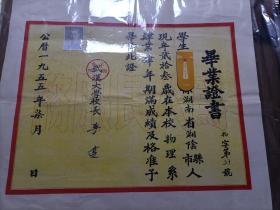 畢業證書
學生
係湖南省湘陰縣市人
現年貳拾叁歲在本校物理系
肄業肆年期滿成績及格准予
畢業此證
武漢大學校長李達
公曆一九五五年柒月 日